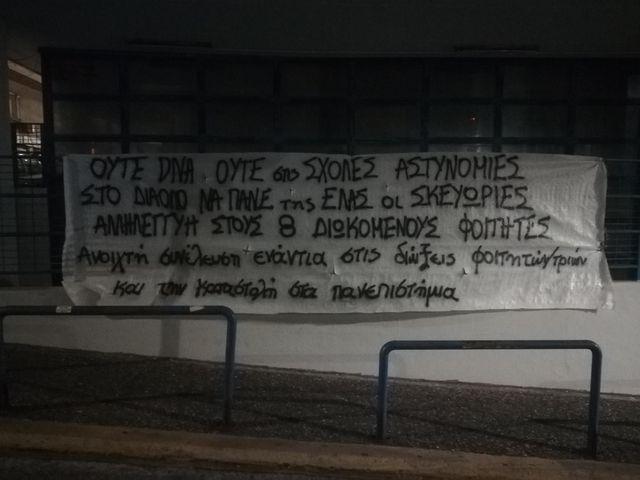 ΟΥΤΕ DNA ΟΥΤΕ στις ΣΧΟΛΕΣ ΑΣΤΥΝΟΜΙΕΣ
ΣΤΟ ΔΙΑΟΛΟ ΝΑ ΠΑΝΕ της ΕΛΑΣ οι ΣΚΕΥΩΡΙΕΣ
ΑΛΛΗΛΕΓΓΥΗ ΣΤΟΥΣ 8 ΔΙΩΚΟΜΕΝΟΥΣ ΦΟΙΤΗΤΕΣ
Ανοιχτή συνέλευση ενάντια στις διώξεις φοιτητών/τριών
και την καταστολή στα πανεπιστήμια